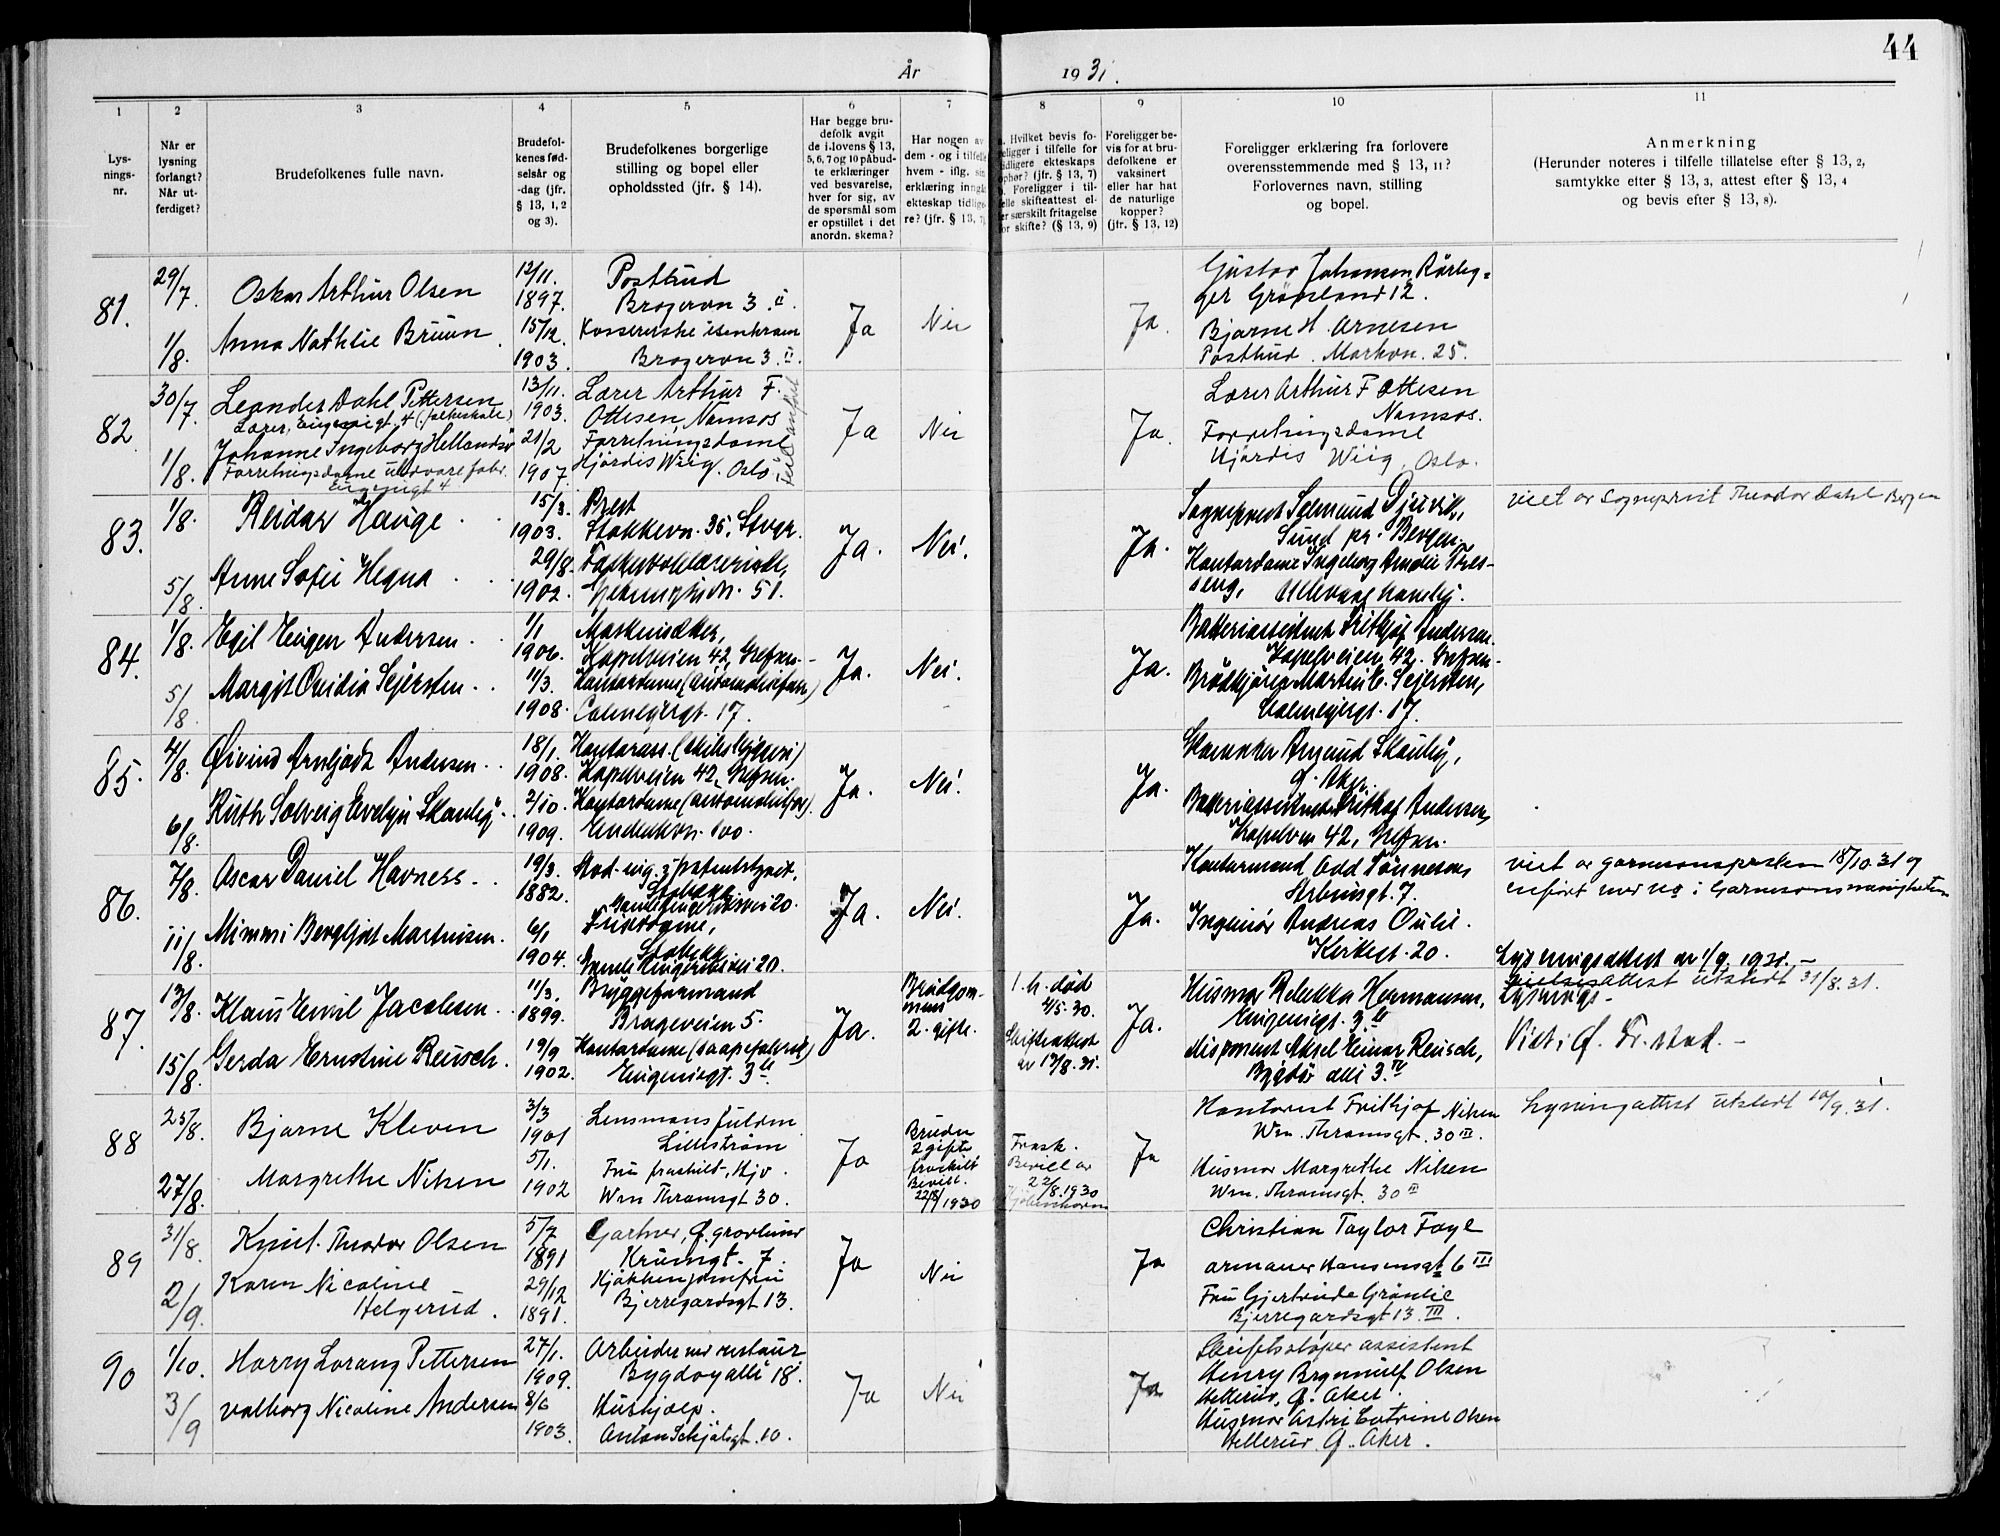 44
År 1931.
1 2 3 4 5 6 7 8 9 10 11
Lys-
nings-
nr.
Når er
lysning
forlangt?
Når ut-
ferdiget?
Brudefolkenes fulle navn.
Brudefol-
kenes fød-
selsår og
-dag (jfr.
§ 13, 1, 2
og 3).
Brudefolkenes borgerlige
stilling og bopel eller
opholdssted (jfr. § 14).
Har begge bru-
defolk avgit
de i lovens § 13,
5, 6, 7 og 10 påbud-
te erklæringer
ved besvarelse,
hver for sig, av
de spørsmål som
er opstillet i det
anordn. skema?
Har nogen av
dem - og i tilfelle
hvem - iflg. sin
erklæring inngått
ekteskap tidlige-
re? (jfr. § 13, 7)
a. Hvilket bevis fo-
religger i tilfelle for
tidligere ekteskaps
ophør? (jfr. § 13, 7)
b. Foreligger i til-
felle skifteattest el-
ler særskilt fritagelse
for skifte? (§ 13, 9)
Foreligger be-
vis for at bru-
defolkene er
vaksinert
eller har hat
de naturlige
kopper?
(jfr. § 13, 12)
Foreligger erklæring fra forlovere
overensstemmende med § 13, 11?
Forlovernes navn, stilling
og bopel.
Anmerkning
(Herunder noteres i tilfelle tillatelse efter § 13, 2,
samtykke efter § 13, 3, attest efter § 13, 4
og bevis efter § 13, 8).
81.
29/7.
1/8.
Oskar Arthur Olsen
Anna Nathlie Bruun.
12/11.
1897.
15/12.
1903.
Postbud
3. II.
3. II.
Ja
Nei
Ja.
Gustav Johansen
Grønland 12.
Bjarne H. Arnesen
Postbud. Markvn. 25.
82
30/7.
1/8.
Leander Dahl Pettersen
Lærer, Eugeniagt. 4 (folkeskole)
Johanne Ingeborg Hellandsjø
Forretningsdame
Eugeniagt 4
13/11.
1903.
21/2
1907.
Lærer Arthur F.
Ottesen, Namsos
Forretningsdame
Hjørdis Wiig, Oslo.
Feil anført
Ja
Nei
Ja.
Lærer Arthur F Ottesen
Namsos.
Forretningsdame
Hjørdis Wiig, Oslo.
83.
1/8.
5/8.
Reidar Hauge.
Anne Sofie Hegna.
15/3.
1903.
29/8.
1902.
Prest
Stokkevn. 35, Stvgr.
51.
Ja.
Nei.
Ja.
Sogneprest
Sund pr. Bergen.
Kontordame Ingeborg
Ullevaal haveby.
viet av Sogneprest Theodor Dahl Bergen
84.
1/8.
5/8.
Egil Eugen Andersen.
Margit Ovidia Sejersten.
1/1
1906.
11/3.
1908.
Kapelveien 42, Grefsen.
Kontordame
Calmeyergt. 17.
Ja.
Nei.
Ja.
Batteriassistent Frithjof Andersen.
Kapelveien 42. Grefsen.
Brødkjører Martin E. Sejersten,
Calmeyergt. 17.
85.
4/8.
6/8.
Øivind Arnljodt Andersen.
Ruth Solveig Evelyn Skauby.
18/1.
1908.
2/10.
1909.
Kontorass.
Kapelveien 42, Grefsen.
Kontordame
100.
Ja.
Nei.
Ja.
Skauby,
Ø. Aker.
Batteriassistent Frithjof Andersen,
Kapelvn 42, Grefsen.
86.
7/8.
11/8.
Oscar Daniel Havness.
Mimmi Bergljot Martinsen.
19/3.
1882.
6/1
1904.
Avd. ing. i patentstyret,
Stabekk
Gamle Ringeriksvei 20.
Stabekk
Gamle Ringeriksvei 20.
Ja.
Nei.
Ja.
Kontormand Odd Tønnesen
7.
Ingeniør Andreas Oulie.
Kirkegt. 20.
viet av garnisonspresten 18/10.31 og
innført med no i Garnisonsmenigheten
Lysningsattest av 1/9. 1931.
87.
13/8.
15/8.
Klaus Emil Jacobsen.
Gerda Ernstine Reusch.
11/3.
1899.
19/9
1902.
Byggeformand
Brageveien 5.
Kontordame
Eugeniagt. 3.
Ja.
Brudgom-
men
2. gifte.
1. h. død
4/5.30.
Skifteattest
av 17/8.31.
Ja.
Husmor Rebekka Hermansen,
Eugeniagt. 3.
Disponent Aksel Einar Reusch,
Bygdø allé 3. IV
attest utstedt 31/8.31.
Lysnings-
Viet i Ø. Fr.stad.
88
25/8.
27/8.
Bjarne Kleven
Margrethe Nilsen
3/3
1901
5/1.
1902
Lensmansfuldm.
Lillestrøm
Fru fraskilt,
Wm Thranesgt 30.
Ja
Bruden
2 gifte
fraskilt
Bevill.
22/8 1930
Frask.
Bevill av
22/8.1930
Kjøbenhavn
Ja
Kontorist Frithjof Nilsen
Wm. Thranesgt. 30 III.
Husmor Margrethe Nilsen
Wm. Thranesgt. 30 II
Lysningattest utstedt 10/9.31.
89
31/8.
2/9.
Knut Theodor Olsen
Karen Nicoline
Helgerud.
5/7
1891
29/12
1891.
Gartner,
Krumgt. 7.
Kjøkkenjomfru
Bjerregaardsgt 13.
Ja
Nei
Ja
Christian Taylor Faye
Armauer Hansensgt 6 III
Fru Gjertrude Grønlie
Bjerregardsgt 13. III.
90
1/10.
3/9
Harry Lorang Pettersen
Valborg Nicoline Andersen
27/1.
1909.
8/6
1903.
Arbeider ved restaur.
Bygdøy allé 18.
Hushjelp.
Anton Schjøtsgt. 10.
Ja
Nei
Ja
Skriftstøper assistent
Henry Brynulf Olsen
Hellerud, Ø. Aker.
Husmor Astri Catrine Olsen
Hellerud. Ø. Aker.